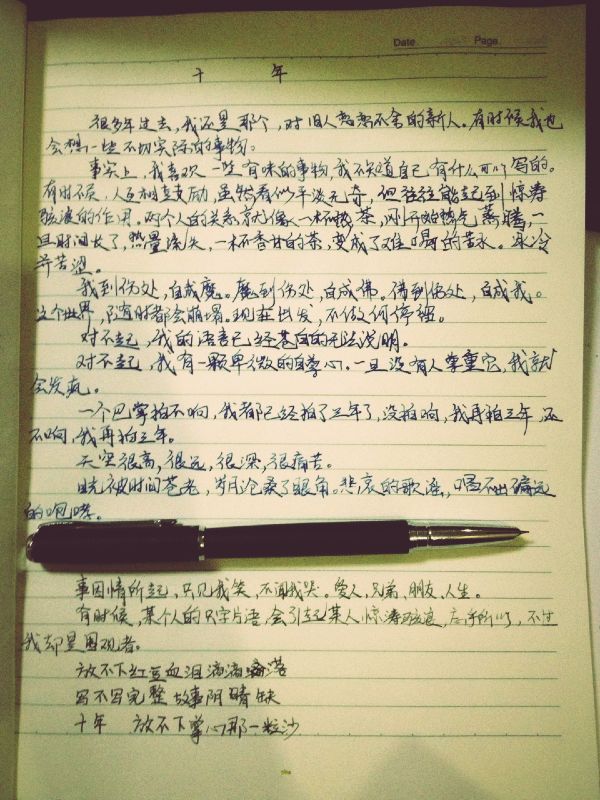 Date    Page
十 年
很多年过去，我还是那个，对旧人恋恋不舍的新人。有时候我也
会想一些不切实际的事物。
事实上，我喜欢一些有味的事物，我不知道自己有什么可以写的。
有时候，人互相鼓励，虽惊看似平淡无奇，但往往能起到惊涛
骇浪的作用。两个人的关系就像一杯热茶，刚开始热气蒸腾，一
旦时间长了，热量流失，一杯香甘的茶，变成了难喝的苦水。冰冷
并苦涩。
我到伤处，自成魔。魔到伤处，自成佛。佛到伤处，自成我。
这个世界，随时都会崩塌。现在出发，不做何停经。
对不起，我的语言已经苍白的无法说明。
对不起，我有一颗卑微的自尊心。一旦没有人尊重它，我就
会发疯。
一个巴掌拍不响，我都已经拍了三年了，没拍响，我再拍三年，还
不响，我再拍三年。
天空很高，很远，很深，很痛苦。
目光被时间苍老，岁月沧桑了眼角。悲哀的歌谣，唱不出遥远
的咆哮。
事因情所起，只见我笑，不闻我哭。爱人，兄弟，朋友，人生。
有时候，某个人的只字片语，会引起某人惊涛骇浪，不过
我却是围观者。
放不下红豆血泪滴滴落
写不写完整故事阴晴缺
十年 放不下掌心那一粒沙